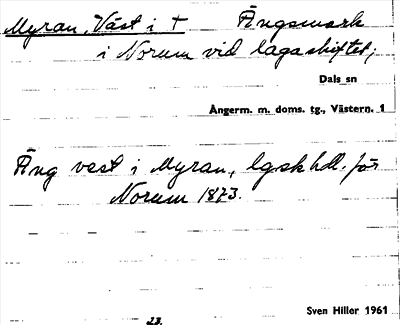 Myran, Väst i † Ängsmark
i Norum vid lagaskiftet;
Dals sn
Ångerm. m. doms. tg., Västern. 1
Äng vest i Myran, lgsk hdl. för
Norum 1873.
Sven Hiller 1961
23.